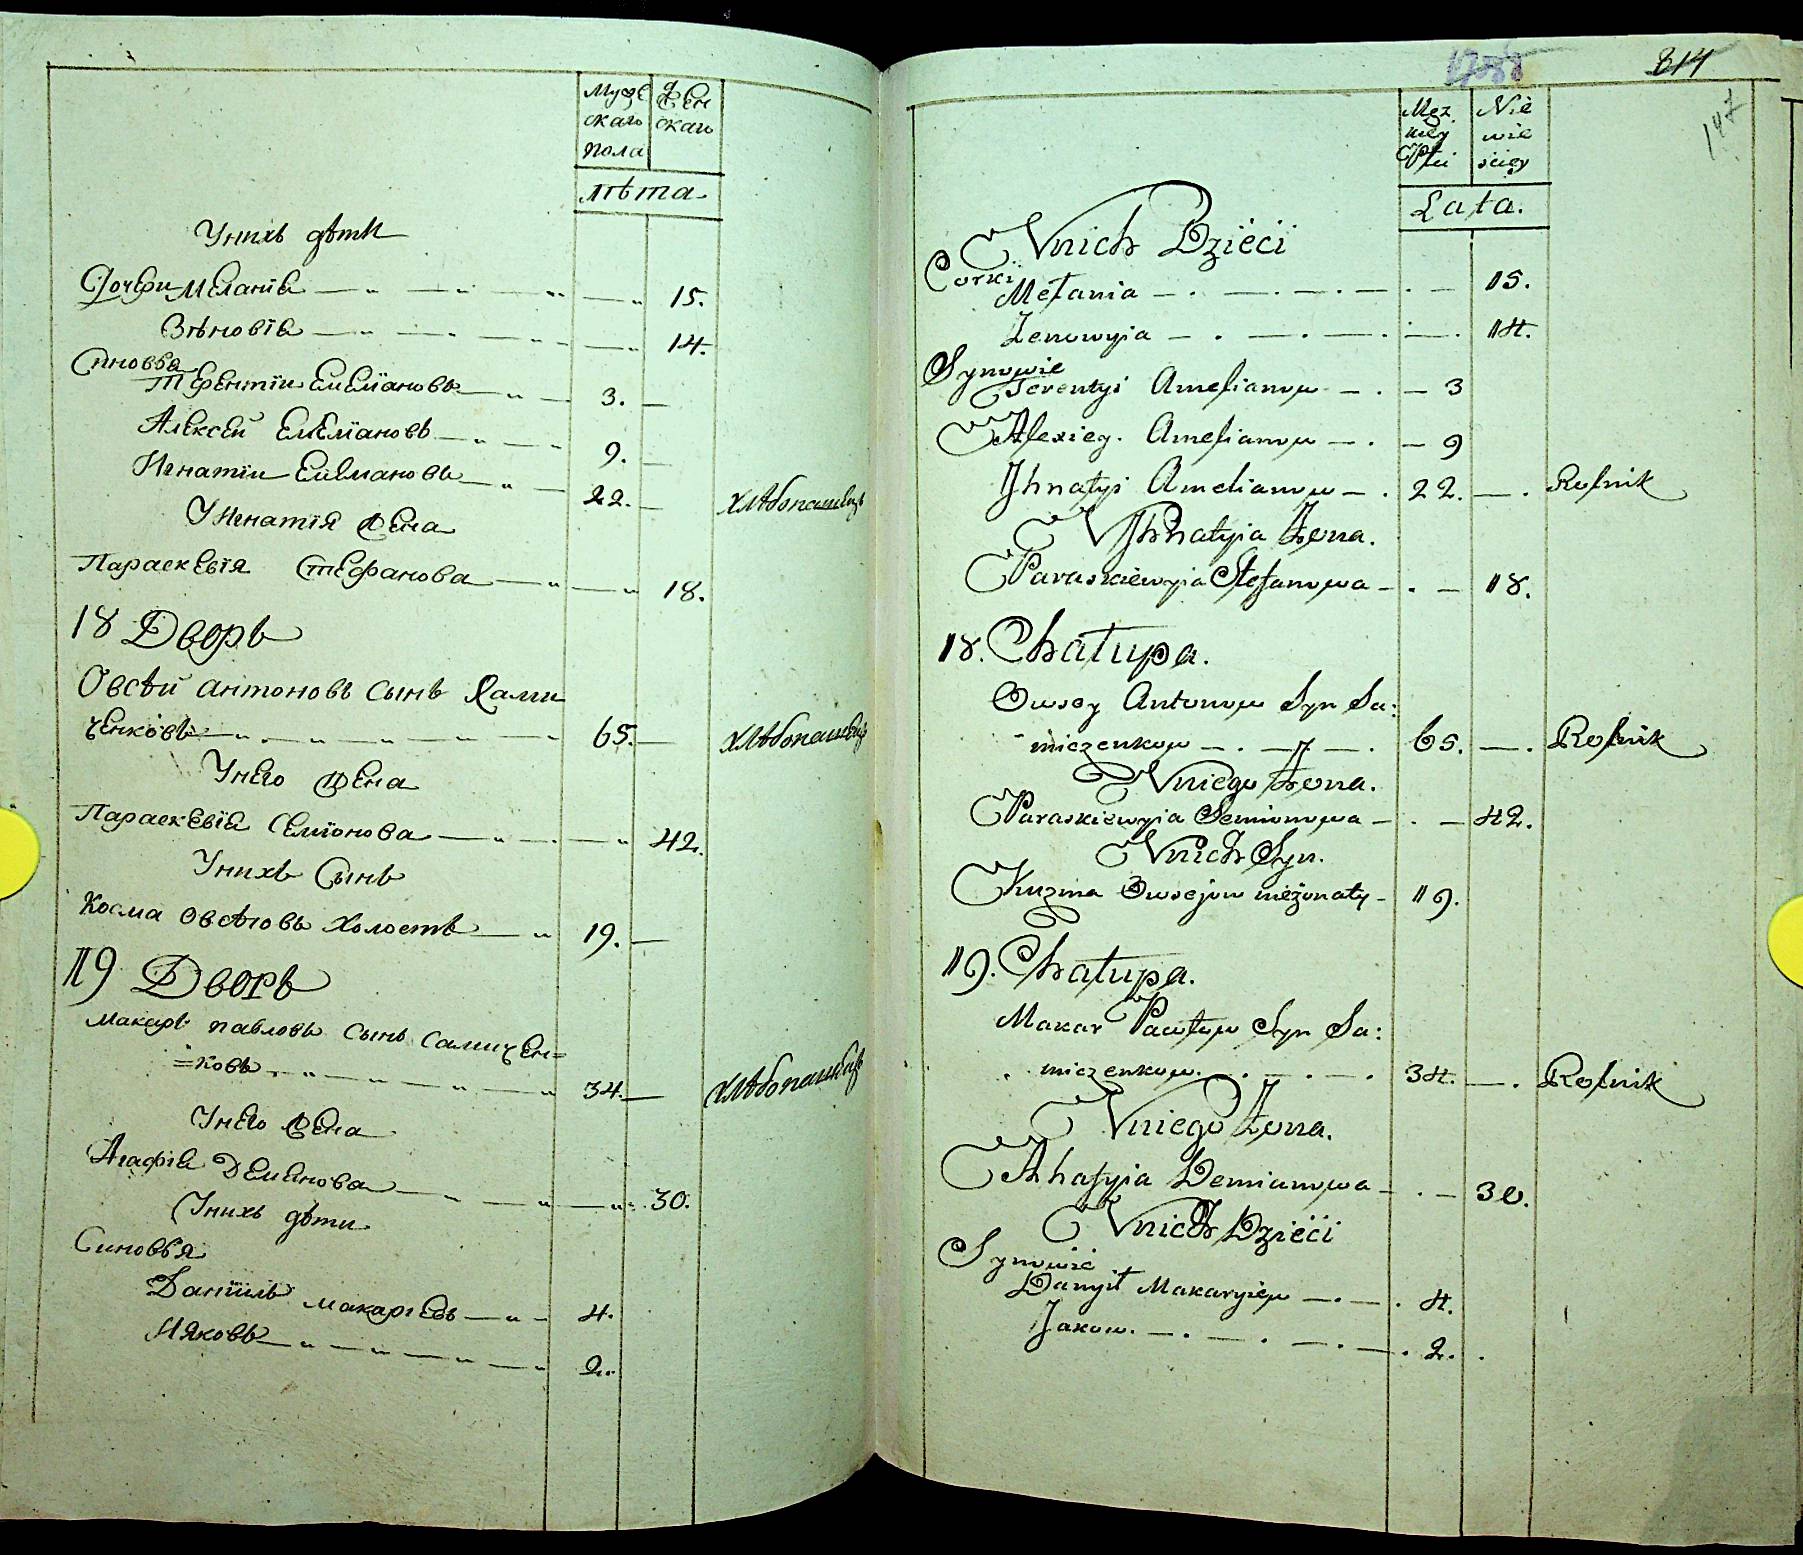 Мужескаго пола
Женскаго
лѣта
Унихъ дѣти
Дочери Меланїя 15.
Зѣновїя 14.
Сыновья
Терентїи Емелїановъ 3.
Алексѣй Емелїановъ 9.
Игнатїи Емелїановъ 22. хлѣбопашецъ
У Игнатїя жена
Параскевїя Стефанова 18.
18 Дворъ
Овсѣй Антоновъ сынъ Сами
ченковъ 65. хлѣбопашецъ
Унего жена
Параскевїя Семїонова 42.
Унихъ Сынъ
Косма Овсѣювъ Холостъ 19.
19 Дворъ
Макаръ Павловъ сынъ Самичен=
=ковъ 34. хлѣбопашецъ
Унего жена
Агафїя Демянова 30.
Унихъ дѣти
Синовья
Данїилъ Макарїевъ 4.
Ияковъ 2.
814
147
Męz
kiey
Płci
Nie
wie
sciey
Lata.
Vnich Dzieci
Corki
Mełania 15.
Zenowyia 14.
Synowie
Terentyi Amelianow 3
Alexiey. Amelianow 9
Jhnatyi Amelianow 22. Rolnik
V Jhnatyia Żona.
Paraskiewyia Stefanowa 18.
18. Chałupa.
Owsey Antonow Syn Sa:
miczenkow 65. Rolnik
Vniego Żona.
Paraskiewyia Semionowa 42.
Vnich Syn.
Kuzma Owsejow nieżonaty 19.
19. Chałupa.
Makar Pawłow Syn Sa:
miczenkow. 34. Rolnik
Vniego Żona.
Ahafyia Demianowa 30.
Vnich Dzieci
Synowie
Danyił Makaryiew 4.
Jakow. 2.